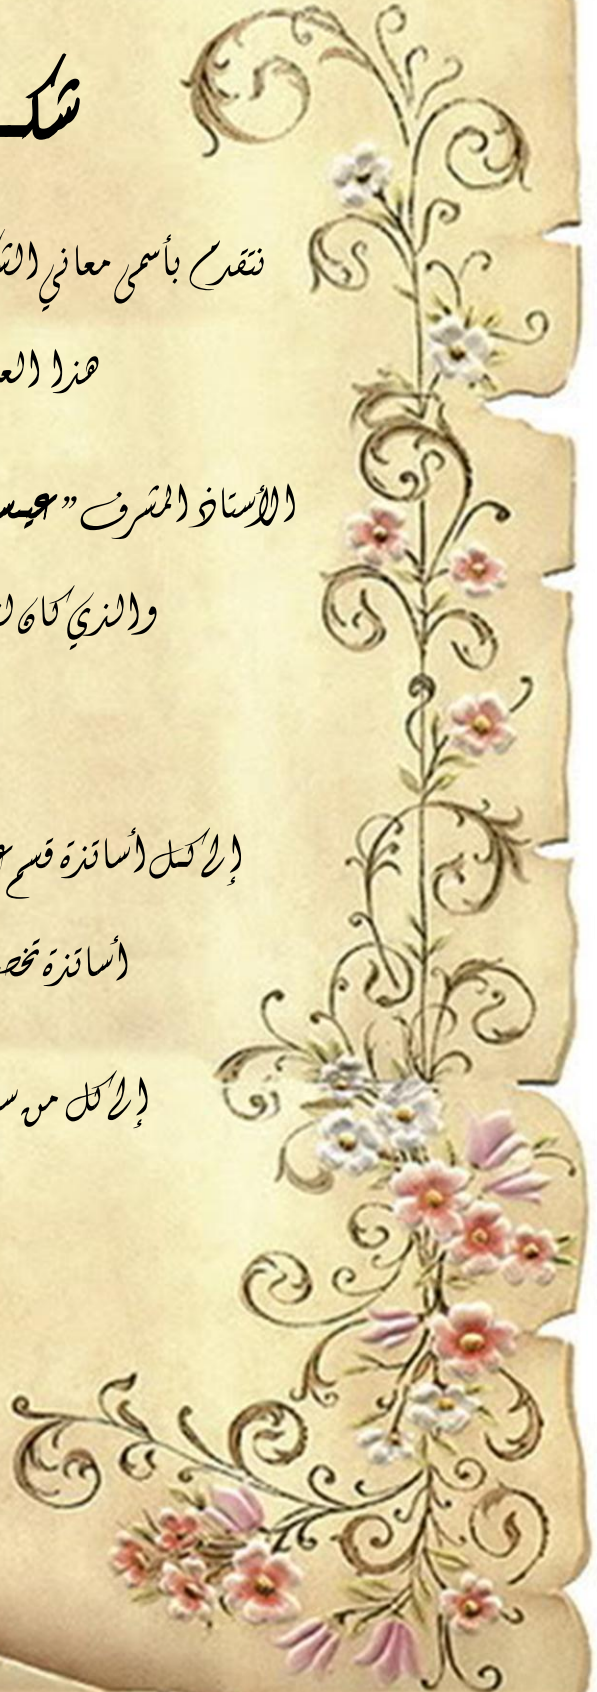 شكـ
نتقدم بأسمى معاني
هذا
الأستاذ المشرف "
والذي كان
إلى كل أساتذة قسم
أساتذة
إلى كل من